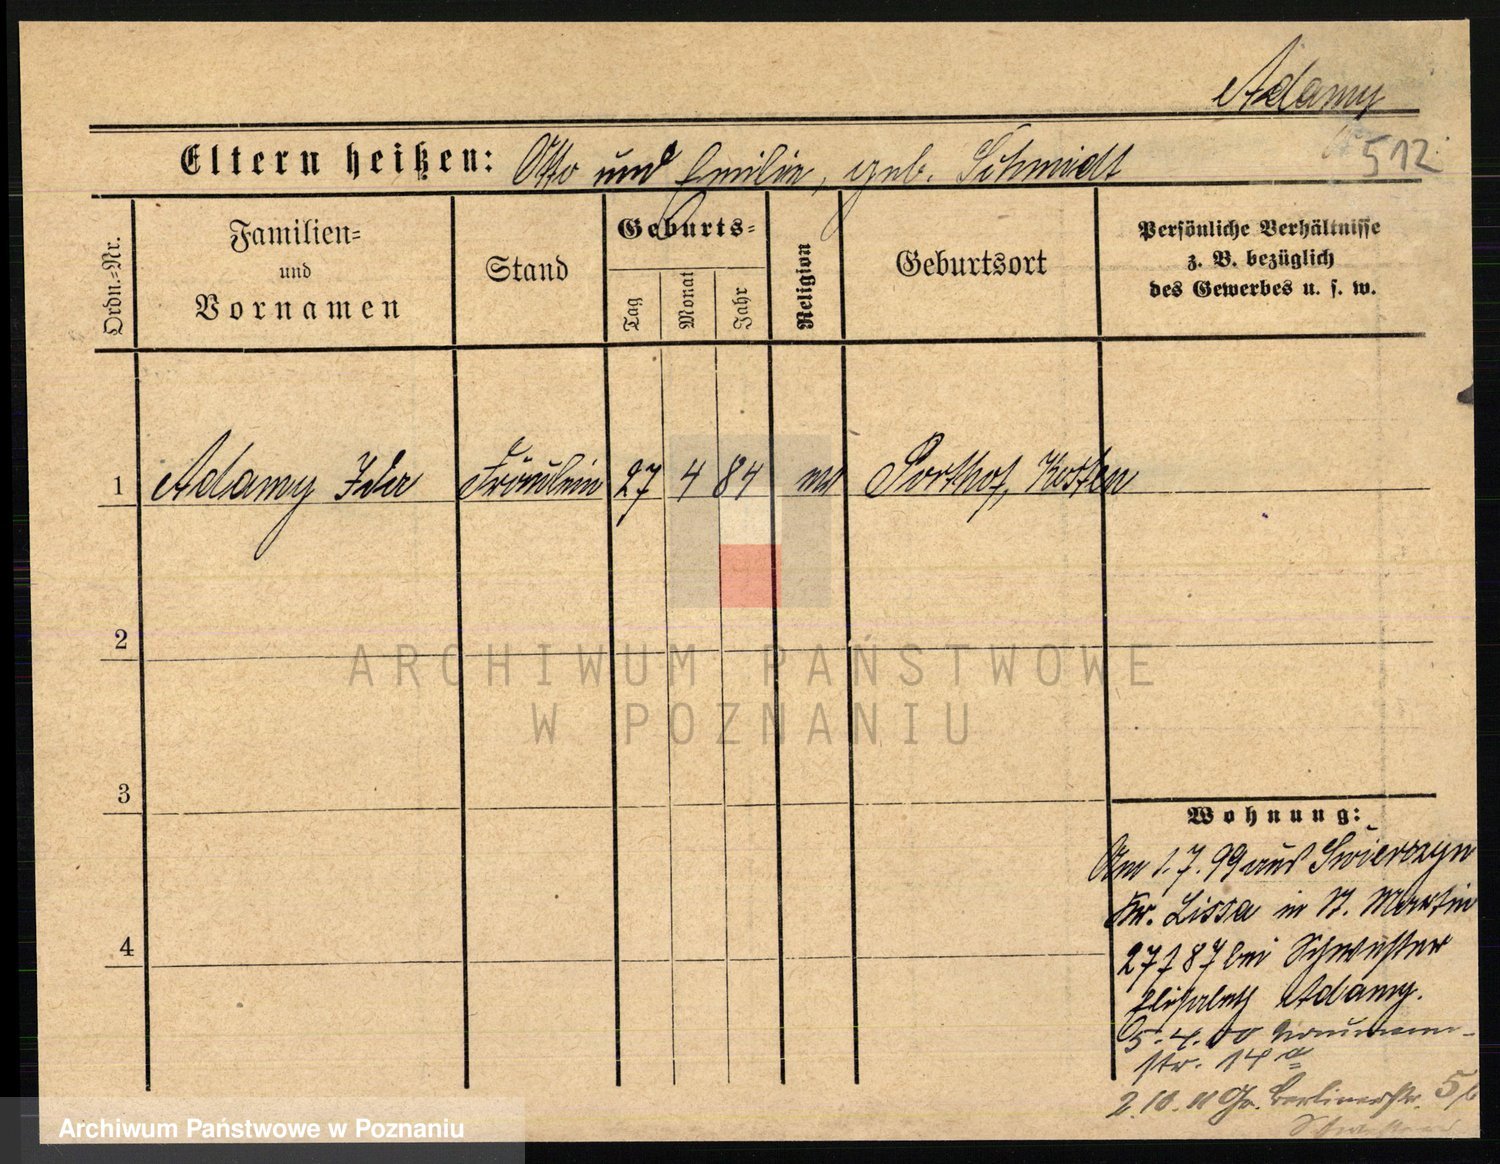 Adamy
512
Eltern heißen: Otto und Emilie, geb. Schmidt
Ordn.-Nr.
Familien-
und
Vornamen
Stand
Geburts-
Tag
Monat
Jahr
Religion
Geburtsort
Persönliche Verhältnisse
z. B. bezüglich
des Gewerbes u. s. w.
1 Adamy Ida Fräulein 27 4 84 Kosten
2
3
4
ARCHIWUM PAŃSTWOWE
W POZNANIU
Wohnung:
Am 1.7.99 aus Swierczyn
Kr. Lissa in St. Martin
bei Schwester
Elisabeth Adamy.
5.4.00 Naumann-
str. 14
2.10. Gr. Berlinerstr.
Archiwum Państwowe w Poznaniu